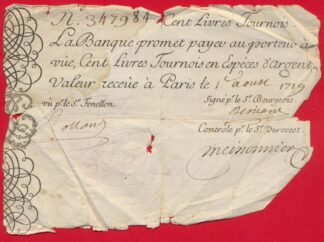 N. 347984 Cent Livres Tournois
La Banque promet payer au porteur à
vûe, Cent Livres Tournois en especes d'argent,
valeur reçeüe à Paris le 1er aoust 1719
vû p.r le S.r Fenellon. Signé p.r le S.r Bourgeois.
Controllé p.r le S.r Durevest.